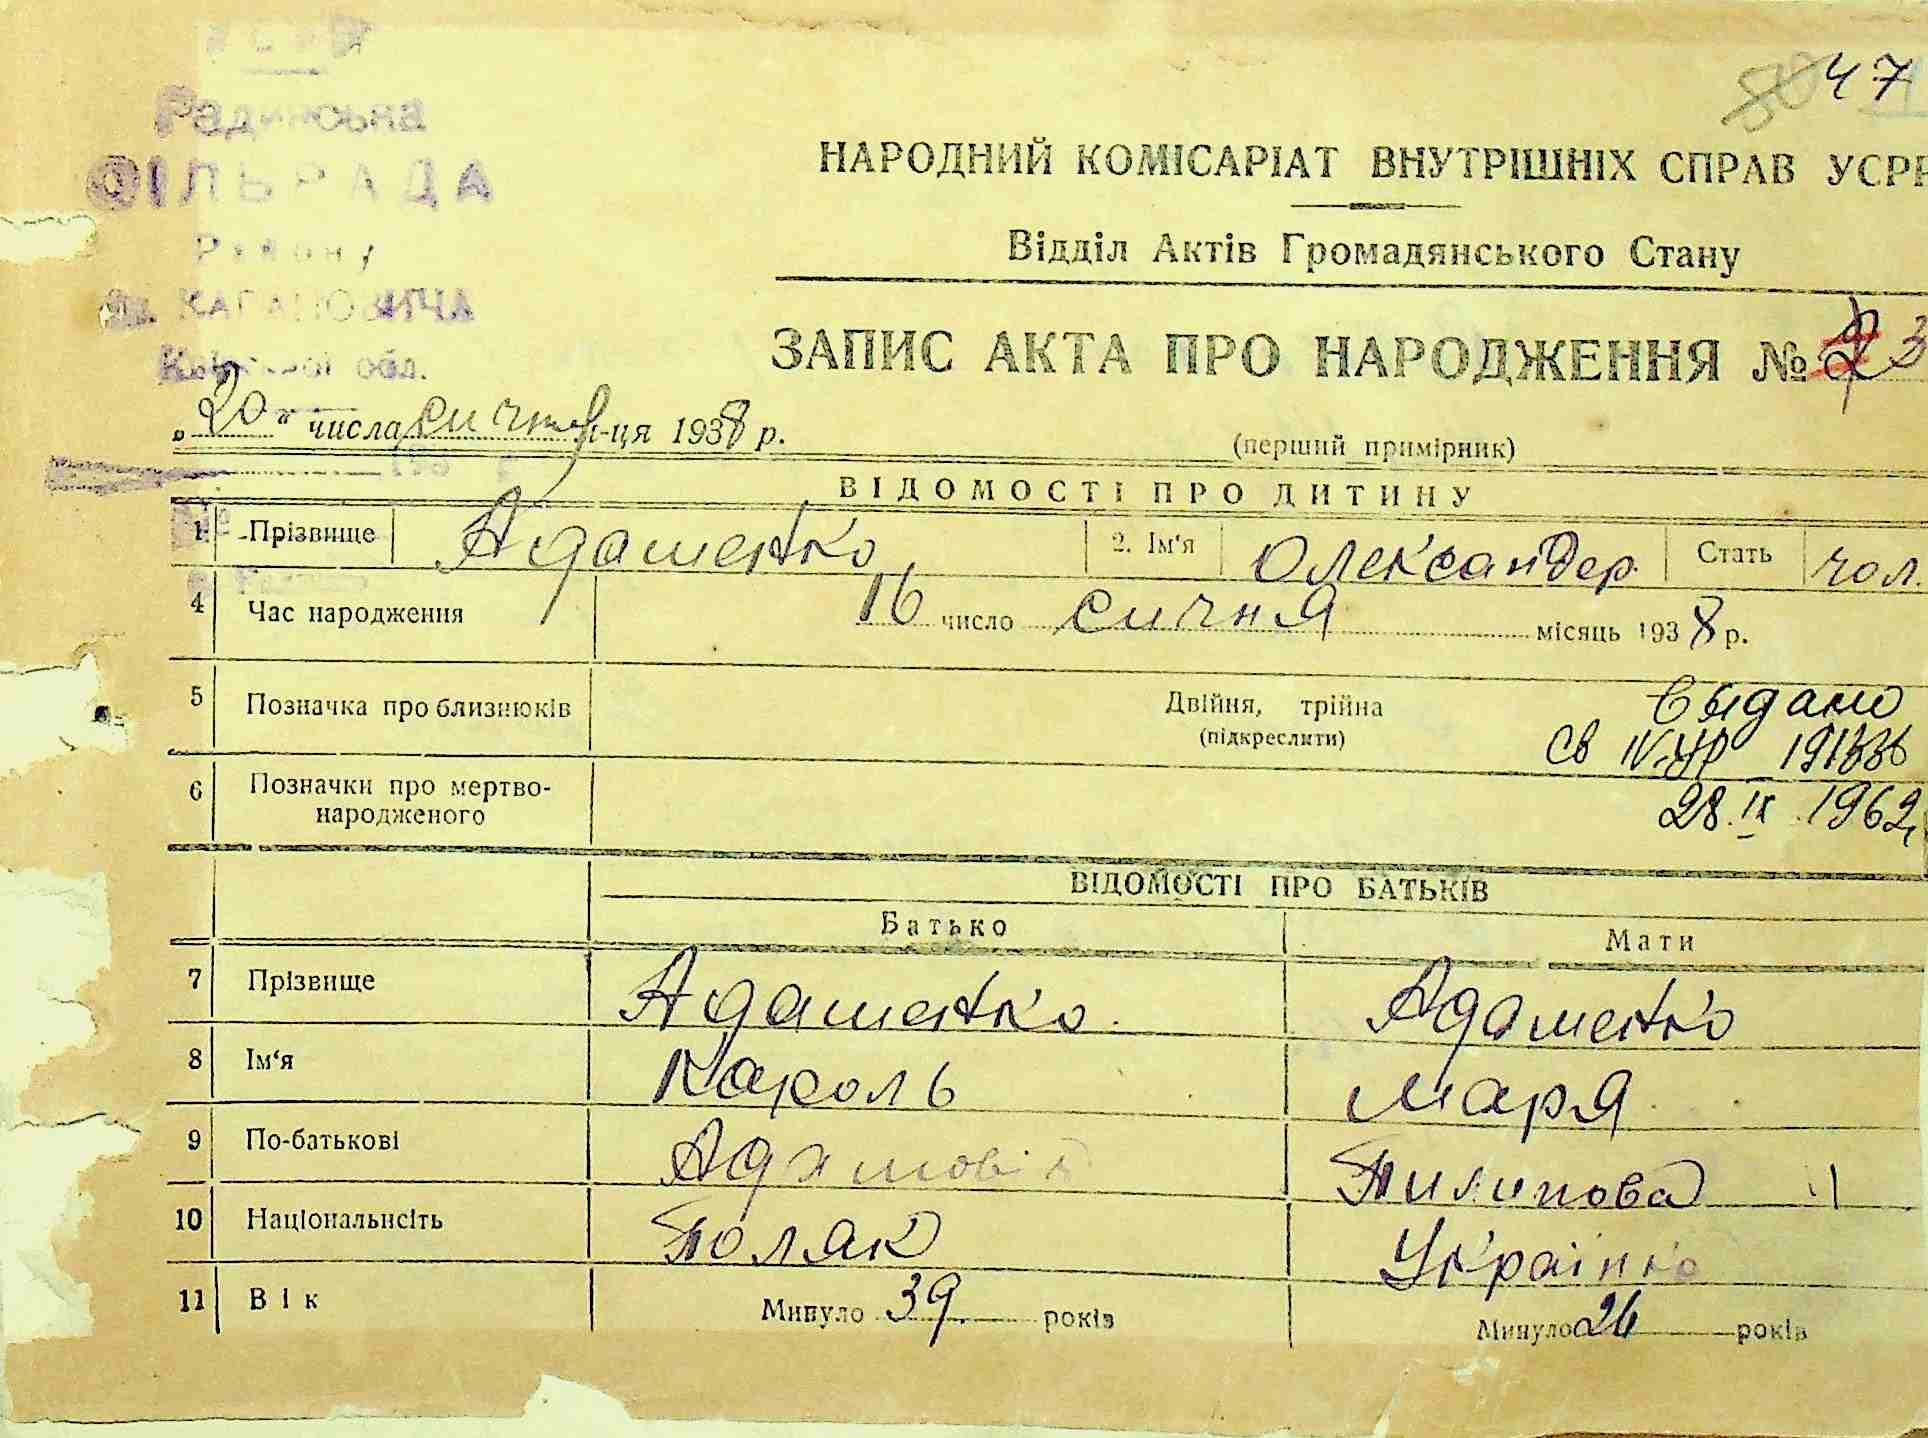 47
Радинська
СІЛЬРАДА
Району
ім. КАГАНОВИЧА
Київської обл.
НАРОДНИЙ КОМІСАРІАТ ВНУТРІШНІХ СПРАВ УСРР
Відділ Актів Громадянського Стану
ЗАПИС АКТА ПРО НАРОДЖЕННЯ № 3
„20“ числа січня м-ця 1938 р.
(перший примірник)
ВІДОМОСТІ ПРО ДИТИНУ
1 Прізвище Адаменко 2. Ім'я Олександер Стать чол.
4 Час народження 16 число сичня місяць 1938 р.
5 Позначка про близнюків Двійня, трійна
(підкреслити)
Выдано
св IV-УР
28.IX.1962
6 Позначки про мертво-
народженого
ВІДОМОСТІ ПРО БАТЬКІВ
Батько Мати
7 Прізвище Адаменко Адаменко
8 Ім'я Кароль Маря
9 По-батькові Адамовіч Пилипова
10 Національність Поляк Українка
11 Вік Минуло 39 років Минуло 26 років